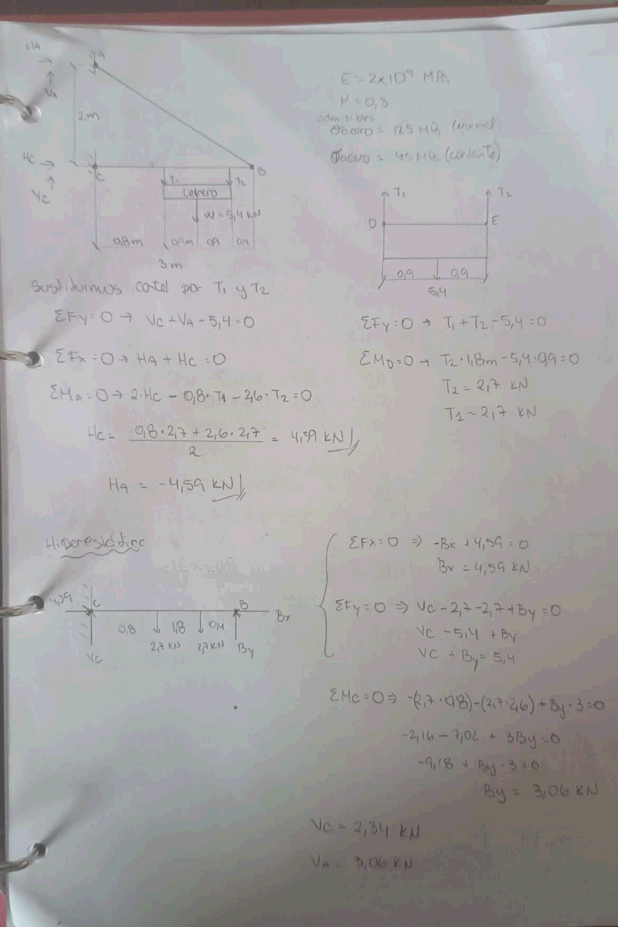 HA
A
VA
2m
HC
VC
C
B
T1
T2
Letrero
W = 5,4 kN
0,8m
0,9m
0,9
0,4
3 m
E = 2x10⁵ MPa
admisibles
σacero = 125 MPa (normal)
σacero = 45 MPa (cortante)
T1
T2
D
E
0,9
0,9
5,4
Sustituimos cartel por T1 y T2
ΣFy=0 → VC+VA-5,4=0
ΣFx=0 → HA + HC = 0
ΣMA=0 → 2·HC - 0,8·T1 - 2,6·T2=0
HC = (0,8·2,7 + 2,6·2,7) / 2 = 4,59 kN
HA = -4,59 kN
ΣFy=0 → T1+T2-5,4=0
ΣMD=0 → T2·1,8m-5,4·0,9=0
T2 = 2,7 kN
T1 = 2,7 kN
Hiperestática
4,59
C
B
Bx
0,8
1,8
0,4
2,7 kN
2,7 kN
By
VC
ΣFx=0 ⇒ -Bx + 4,59 = 0
Bx = 4,59 kN
ΣFy=0 ⇒ VC-2,7-2,7+By=0
VC -5,4 + By
VC + By = 5,4
ΣMC=0 ⇒ -(2,7·0,8)-(2,7·2,6)+By·3=0
-2,16 - 7,02 + 3By=0
-9,18 + By·3=0
By = 3,06 kN
VC = 2,34 kN
VA = 3,06 kN